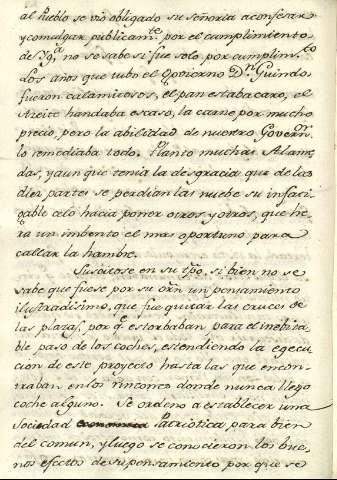 al Pueblo se vio obligado su señoria a confesar
y comulgar publicam.te por el cumplimiento
de Yg.a no se sabe si fue solo por cumplim.to
Los años que tubo el Govierno D.n Guindo
fueron calamitosos, el pan estaba caro, el
Aceite handaba escaso, la carne por mucho
precio, pero la abilidad de nuestro Govern.or
lo remediaba todo. Planto muchas Alame-
das, y aunque tenia la desgracia que de las
diez partes se perdian las nuebe su infati-
gable celo hacia poner otros y otros, que he-
ra un imbento el mas oportuno para
callar la hambre.
Suscitose en su tpo. si bien no se
sabe que fuese por su orn un pensamiento
ilustradisimo, que fue quitar las cruces de
las plazas, por q.e estorbaban para el inebita-
ble paso de los coches, estendiendo la egecu-
cion de este proyecto hasta las que encon-
traban en los rincones donde nunca llego
coche alguno. Se ordeno a establecer una
Sociedad economica Patriotica para bien
del comun, y luego se conocieron los bue-
nos efectos de su pensamiento por que se